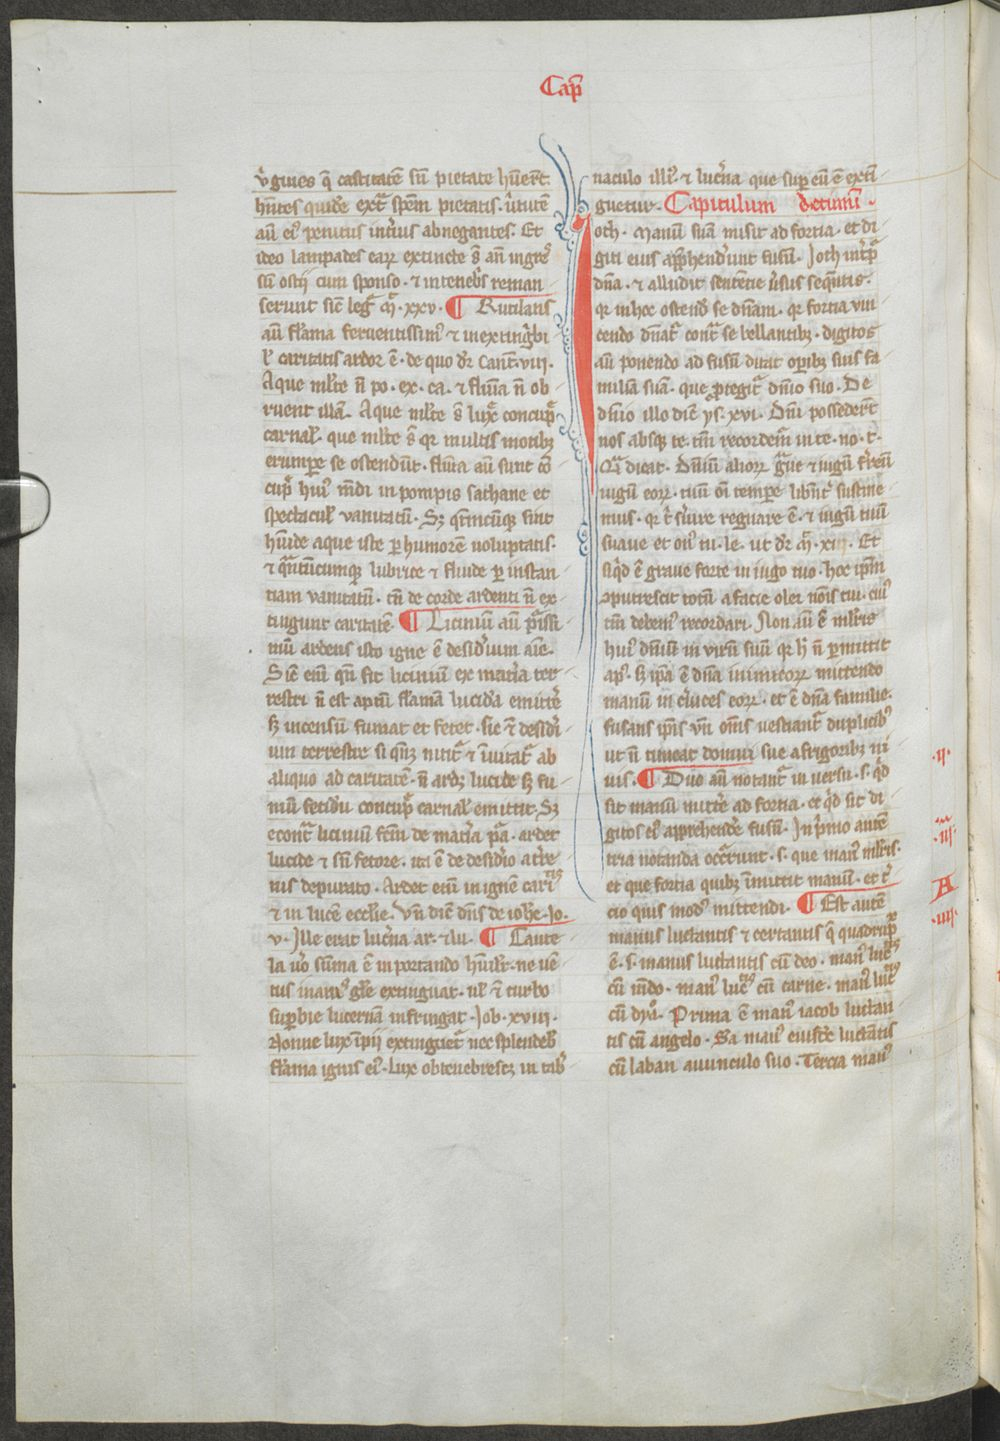 Cap̃
v̓gines q̃ castitatẽ sñ pietate hũerĩt.
hñtes quidẽ ext̃ spẽm pietatis. v̓tutẽ
aũ ei᷒ penitus int̓ius abnegantes. Et
ideo lampades earꝝ extincte ſt̃ añ ingreſ
sũ ostij cum sponso. ⁊ in teneb̓s reman
serunt sic̃ leg̃ᷓ m̃ᷓ. xxv. ¶ Rutilans
aũ flãma feruentissim᷒ ⁊ inexting̓bi
ł caritatis ardor ẽ. de quo dr̃ Cant̃. viii.
Aque młte ñ po. ex. ca. ⁊ flũĩa ñ ob
ruent illã. Aque młte ſt̃ lux̃ᷓ concup̃
carnał. que młte ſt̃ qꝛ multis motibꝫ
erumpe se ostendũt. flũĩa aũ sunt ꝯ̃
cup̃ᷓ hui᷒ mũdi in pompis sathane et
spectacuł vanitatũ. Sꝫ q̃ntũcũqꝫ sint
hũide aque iste ꝑ humorẽ voluptatis.
⁊ q̃ntũcumqꝫ lubrice ⁊ fluide ꝑ instan
tiam vanitatũ. tñ de corde ardenti ñ ex
tingunt caritatẽ. ¶ Liciniũ aũ p̃issi
mũ ardens isto igne ẽ desid̓ium aĩe.
Sic̃ eñĩ qñ fit licinium ex mat̓ia ter
restri ñ est aptũ flãmã lucidã emitt̓e
sꝫ incensũ fumat et fetet. sic ⁊ desid̓i
um terrestre si q̃nꝫ nitit̃ ⁊ ĩuitat̃ ab
aliquo ad caritatẽ. ñ ardꝫ lucide sꝫ fu
mũ fetidũ concup̃ carnał emittit. Sꝫ
econt̃ liciniũ fc̃m de mat̓ia p̃ᷓ. ardet
lucide ⁊ sñ fetore. ita ẽ de desid̓io a t̓re
nis depurato. Ardet eñĩ in ignẽ caritis
⁊ in lucẽ eccłie. Vñ dic̃ dñs de ioh̃e. Jo.
v. Jlle erat luc̓na ar. ⁊ lu. ¶ Caute
la v̓o sũma ẽ in portando hũił. ne uẽ
tus inanis gł̃e extinguat. uł ⁊ turbo
sup̱bie lucernã infringat. Job. xviii.
Nonne lux ĩpij extinguet̃ nec splendeb̃
flãma ignis ei᷒. lux obtenebrescꝫ in tab̓
naculo illi᷒. ⁊ luc̓na que suꝑ eũ ẽ exti
guetur. Capitulum decimũ.
Ioth. Manũ suã misit ad fortia. et di
giti eius app̃hend̓unt fusũ. Joth int̓p̃
dña. ⁊ alludit sentẽtie v̓sus seq̃ntis.
qꝛ in hoc ostend̓ se dñam. qꝛ fortia vin
cendo dñat̃ cont̃ se bellantibꝫ. digitos
aũ ponendo ad fusũ ditat oꝑibꝫ suis fa
miliã suã. que ꝓtegit̃ dñio suo. De
dñio illo dic̃ ys. xvi. Dñi possederũt
nos absqꝫ te. tm̃ recordem̃ in te. no. t̓.
Q̃ᷓ dicat. Dñiũ alioꝝ g̃ue ⁊ iugũ f̓reũ
iugũ eoꝝ. tuũ om̃ tempe libñt̓ sustine
mus. qꝛ t̓ s̓uire regnare ẽ. ⁊ iugũ tuũ
suaue et on᷒ tu. le. ut dr̃ m̃ᷓ. xiii. Et
siq̓d ẽ graue forte in iugo tuo. hoc ip̃m
ꝯputrescit totũ a facie olei nõis tui. cui᷒
tm̃ debem᷒ recordari. Non aũ ẽ mł̓ris
hui᷒ dñiũ in virũ suũ qꝛ h̓ ñ ꝑmittit
ap᷒. sꝫ ip̃a ẽ dña inimicoꝝ mittendo
manũ in c̓uices eoꝝ. et ẽ dña familie.
fusans ip̃is vñ om̃s vestiant̃ duplicib᷒
ut ñ timeat domui sue a frigoribꝫ ni
uis. ¶ Duo aũ notant̃ in versu. s. q̓d
sit manũ mitt̓e ad fortia. et q̓d sit di
gitos ei᷒ app̃hend̓e fusũ. Jn p̓mo autẽ
tria notanda occ̃runt. s. que man᷒ mł̓ris.
et que fortia quibꝫ ĩmittit manũ. et t̓
cio quis mod᷒ mittendi. ¶ Est autẽ
manus luctantis ⁊ certantis q̃ quadrup̃
ẽ. s. manus luctantis cũ deo. man᷒ luctis
cũ mũdo. man᷒ luctis cũ carne. man᷒ luctis
cũ dyo. Prima ẽ man᷒ iacob luctan
tis cũ angelo. Sa man᷒ eiusdẽ luctãtis
cũ laban auunculo suo. Tercia man᷒
.ii.
.iii.
A
.iiii.